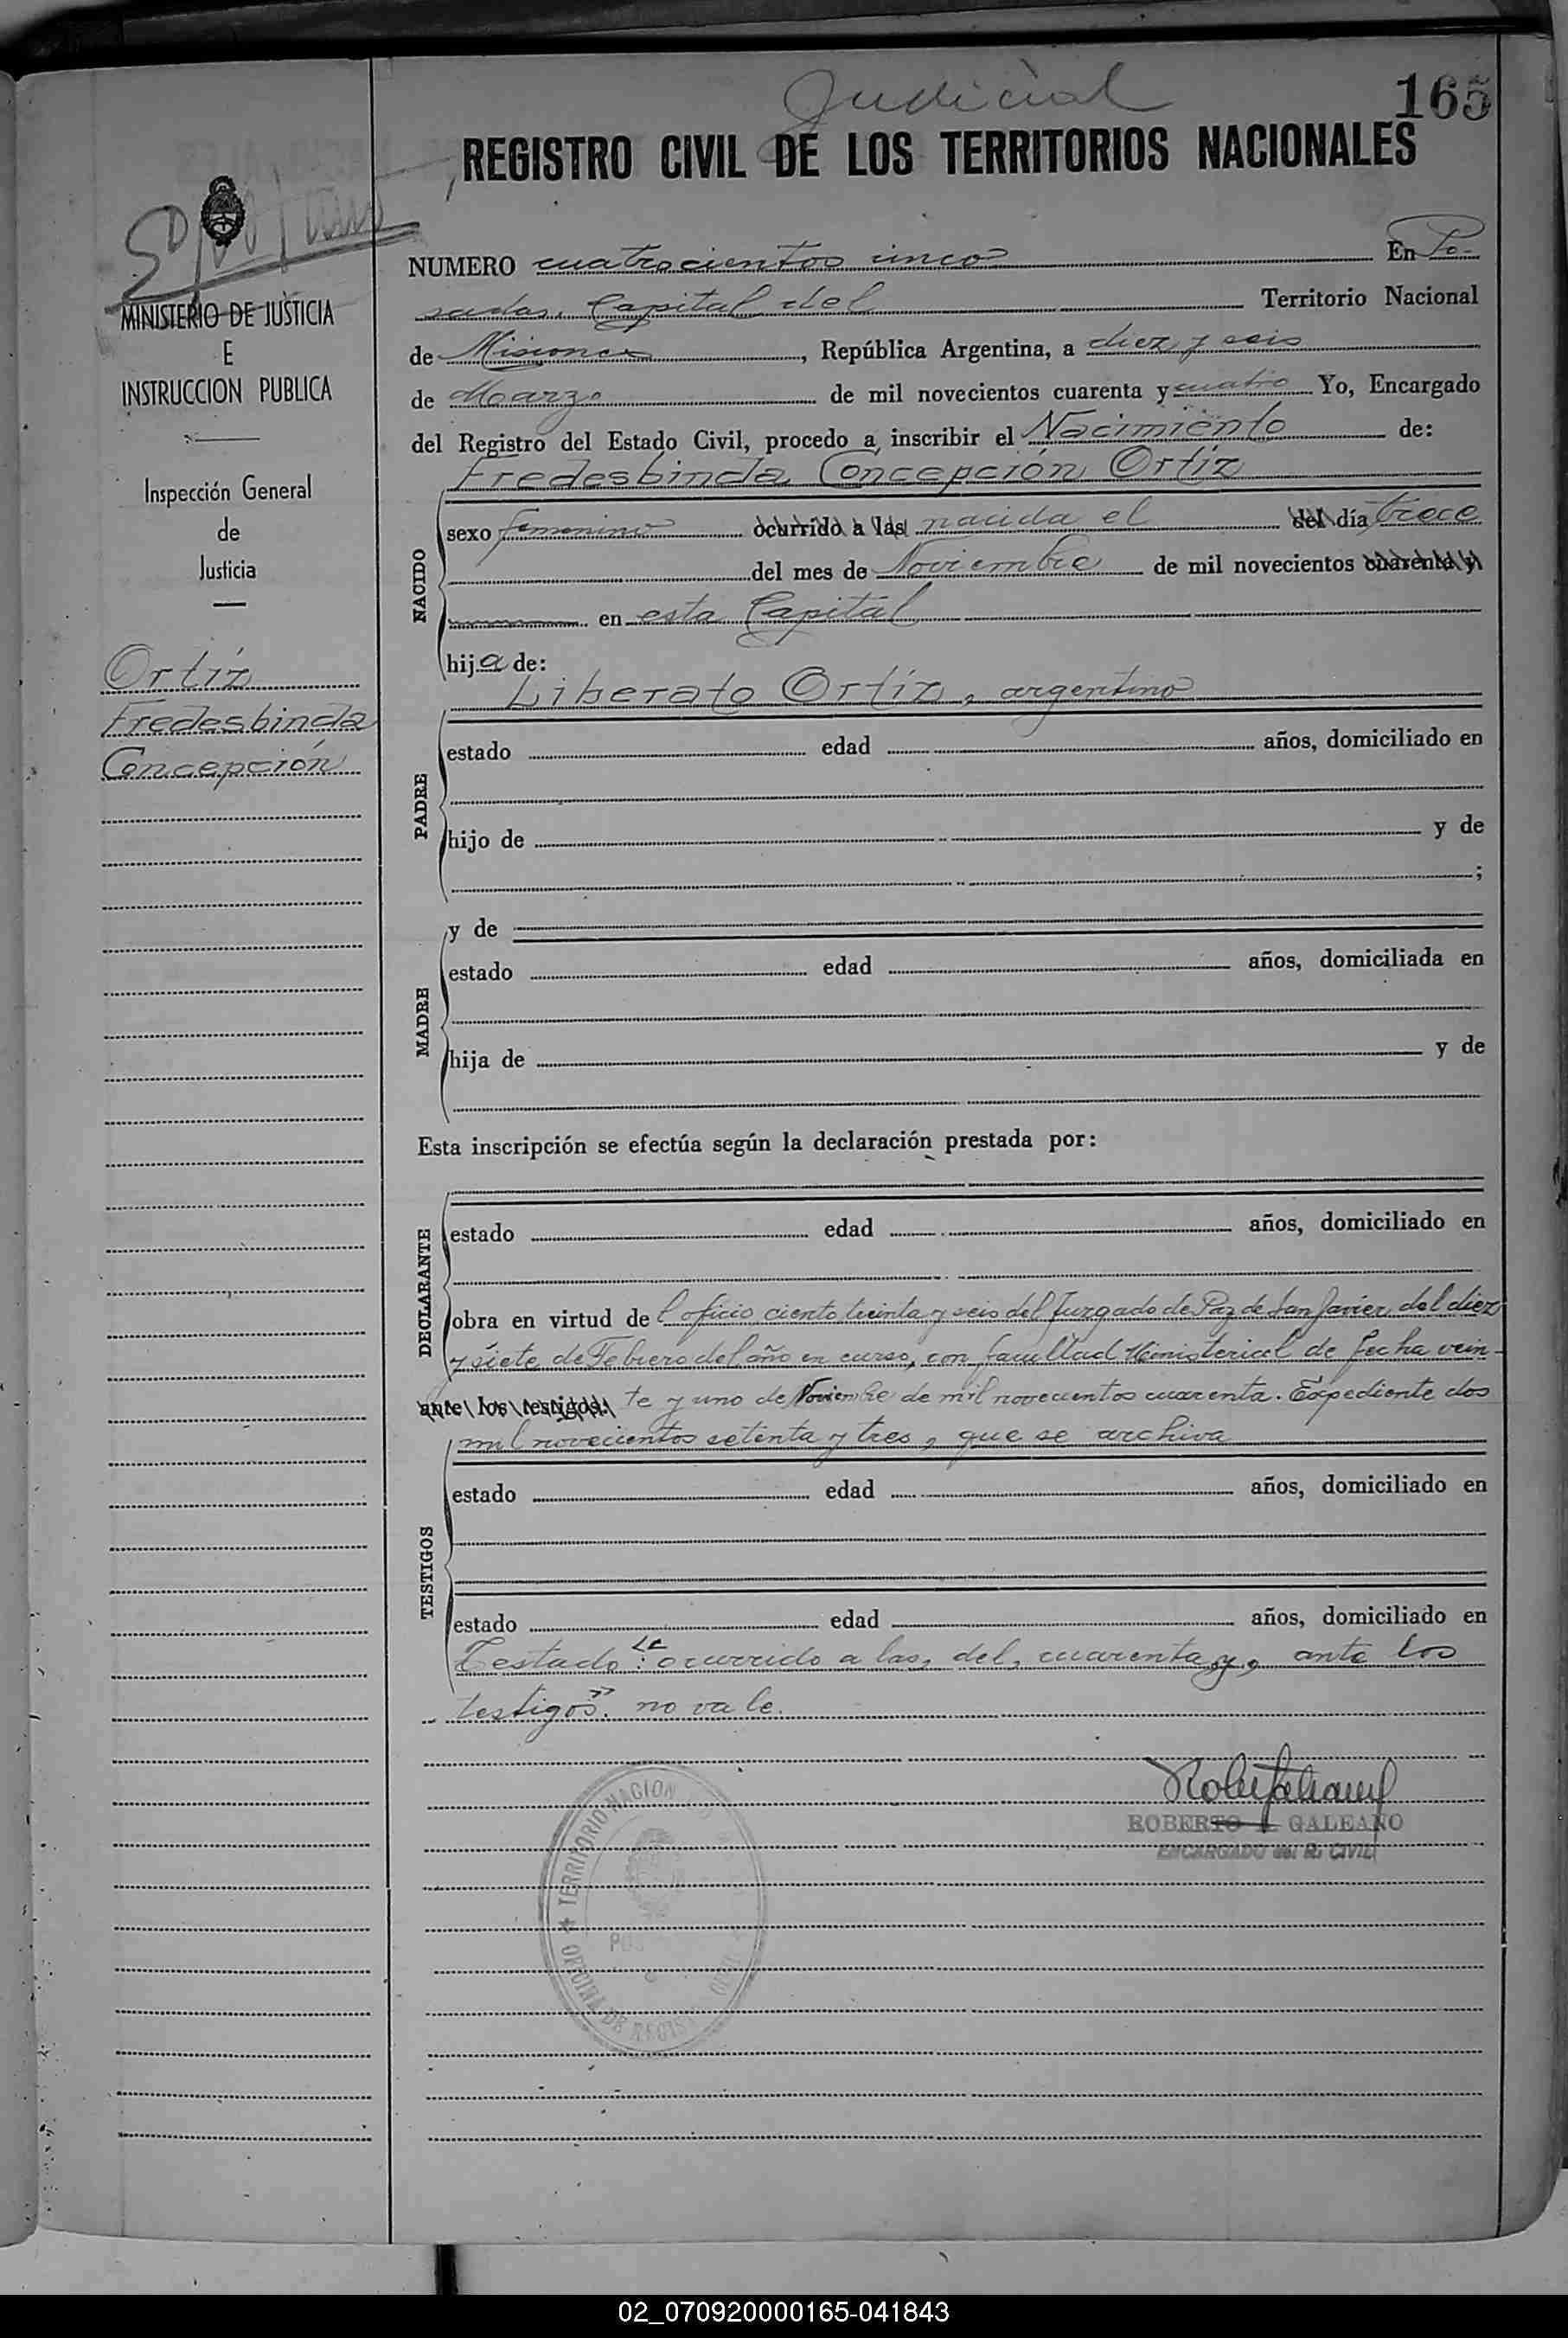 Judicial
165
REGISTRO CIVIL DE LOS TERRITORIOS NACIONALES
MINISTERIO DE JUSTICIA
E
INSTRUCCION PUBLICA
Inspección General
de
Justicia
Ortíz
Fredesbinda
Concepción
NUMERO cuatrocientos cinco En Po-
sadas, Capital del Territorio Nacional
de Misiones, República Argentina, a diez y seis
de Marzo de mil novecientos cuarenta y cuatro Yo, Encargado
del Registro del Estado Civil, procedo a inscribir el Nacimiento de:
Fredesbinda Concepción Ortíz
NACIDO
sexo femenino ocurrido a las nacida el del día trece
del mes de Noviembre de mil novecientos cuarenta y
en esta Capital
hija de:
Liberato Ortíz, argentino
PADRE
estado edad años, domiciliado en
hijo de y de
;
MADRE
y de
estado edad años, domiciliada en
hija de y de
Esta inscripción se efectúa según la declaración prestada por:
DECLARANTE
estado edad años, domiciliado en
obra en virtud del oficio ciento treinta y seis del Juzgado de Paz de San Javier, del diez
y siete de Febrero del año en curso, con facultad Ministerial de fecha vein-
ante los testigos: te y uno de Noviembre de mil novecientos cuarenta. Expediente dos
mil novecientos setenta y tres, que se archiva
TESTIGOS
estado edad años, domiciliado en
estado edad años, domiciliado en
Testado: "ocurrido a las, del, cuarenta y, ante los
testigos". no vale.
ROBERTO GALEANO
ENCARGADO del R. CIVIL
TERRITORIO NACION
OFICINA DE REGIST
02_070920000165-041843